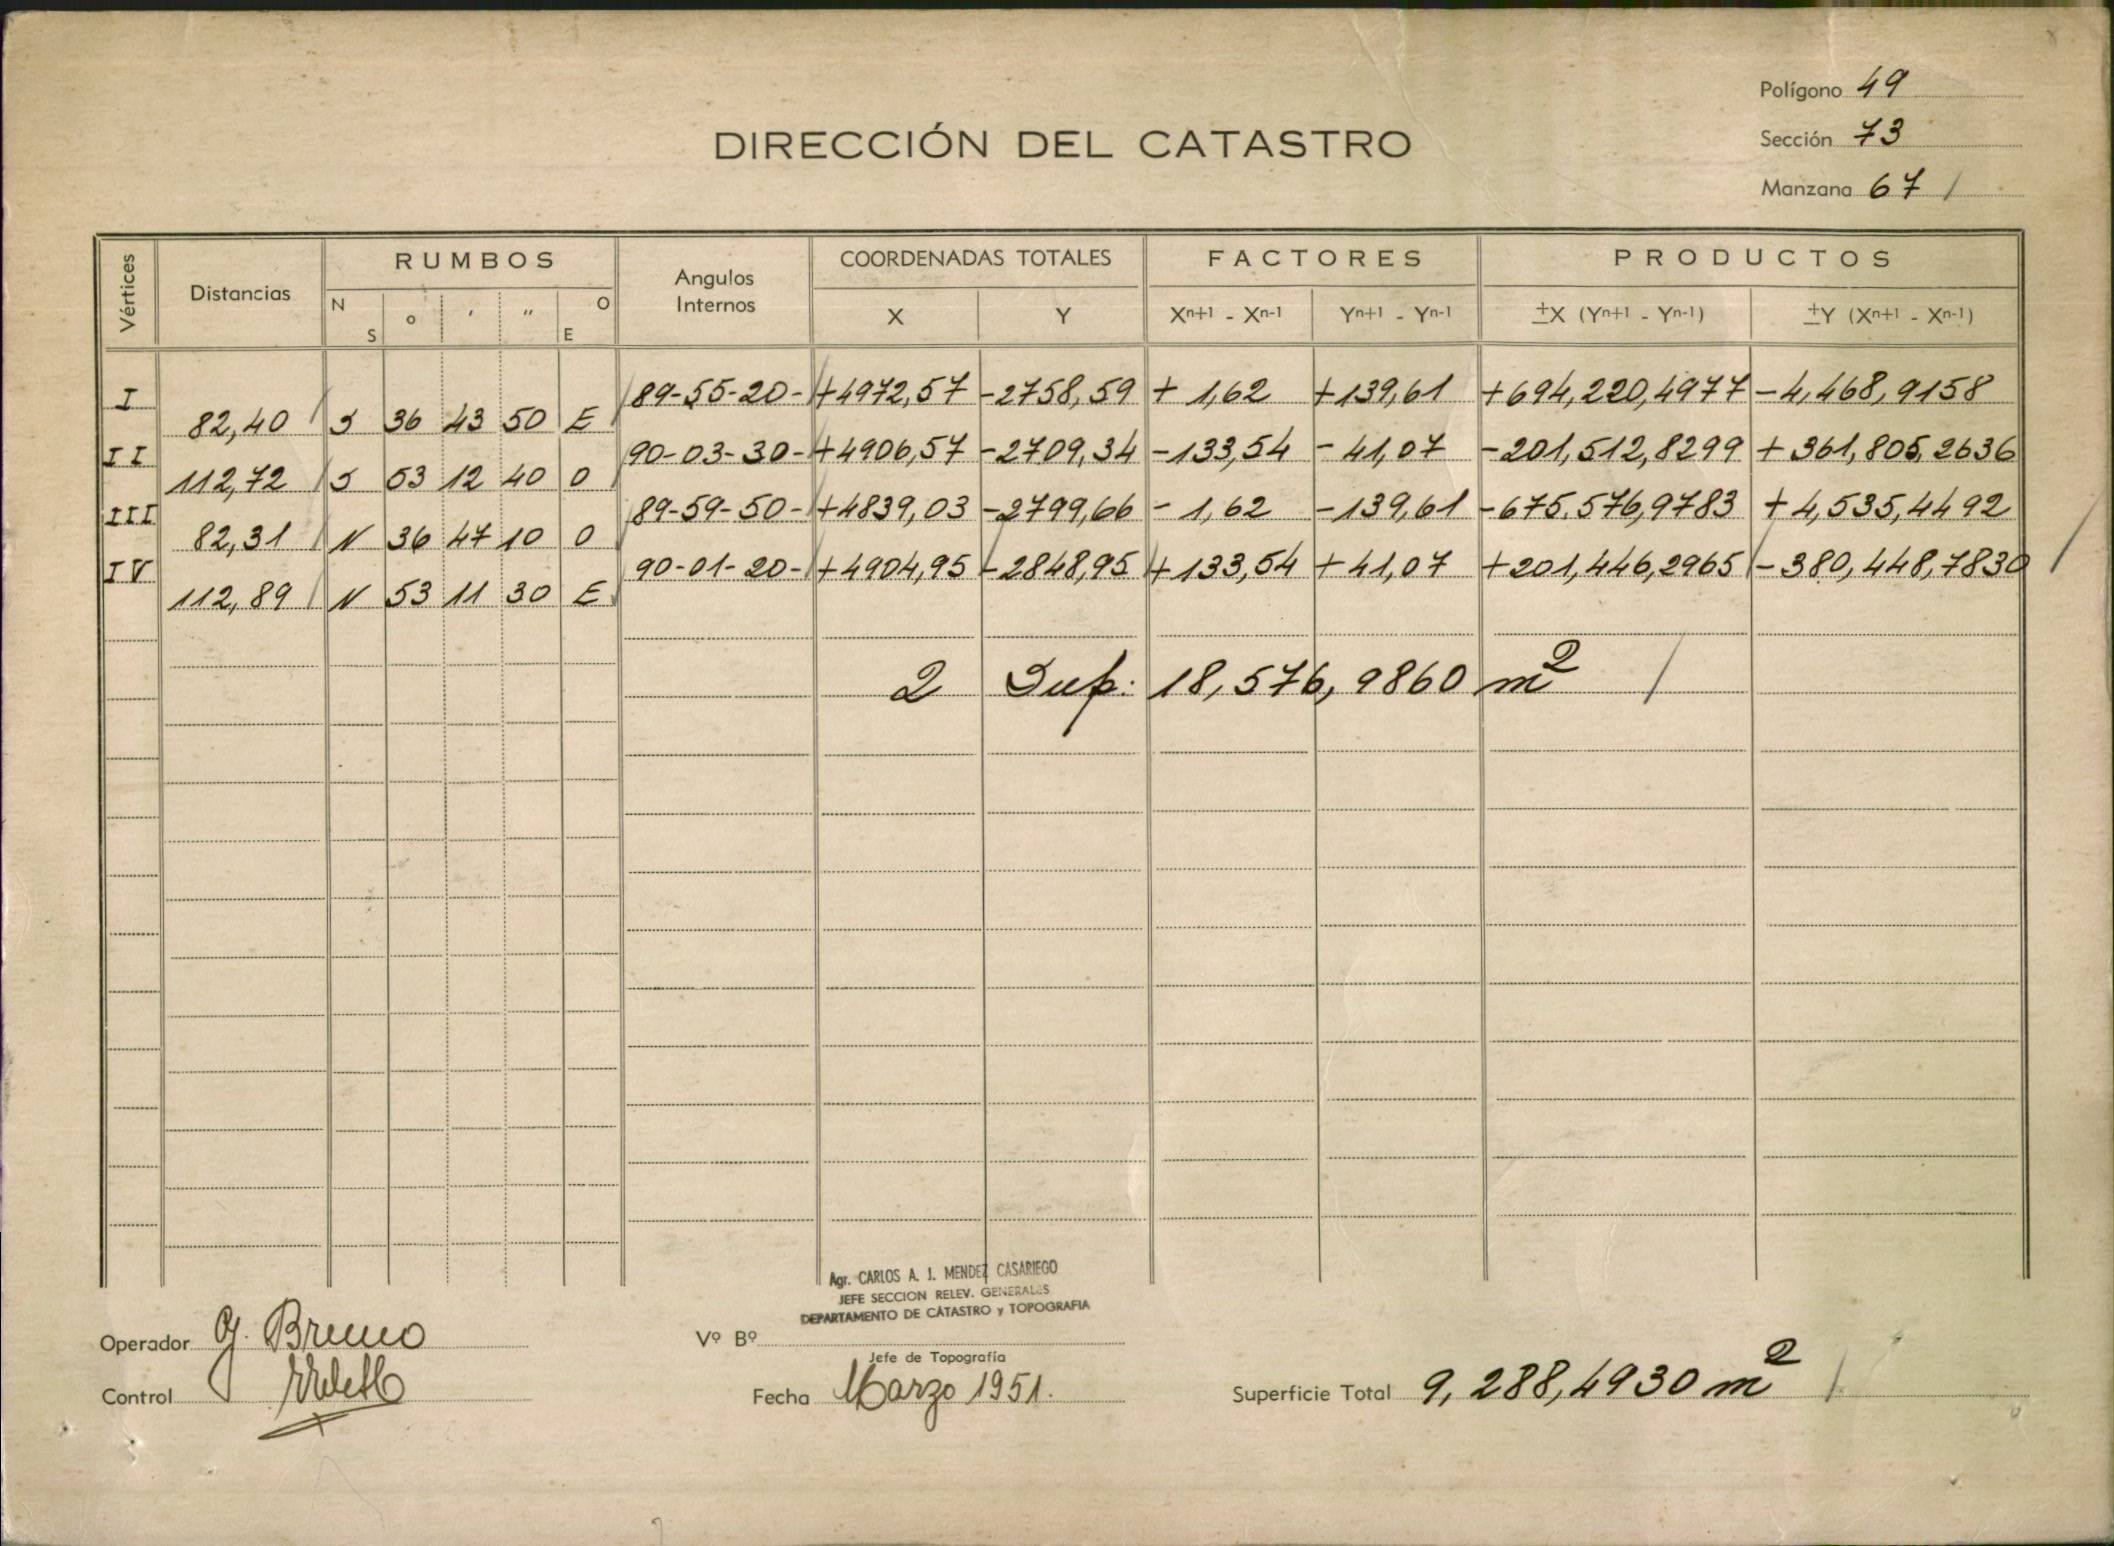 Polígono 49
DIRECCIÓN DEL CATASTRO
Sección 73
Manzana 67
Vértices Distancias RUMBOS Angulos Internos COORDENADAS TOTALES FACTORES PRODUCTOS
N S ° ' " O E X Y Xn+1 - Xn-1 Yn+1 - Yn-1 ±X (Yn+1 - Yn-1) ±Y (Xn+1 - Xn-1)
I 89-55-20- +4972,57 -2758,59 + 1,62 +139,61 +694,220,4977 -4,468,9158
82,40 S 36 43 50 E
II 90-03-30- +4906,57 -2709,34 -133,54 -41,07 -201,512,8299 +361,805,2636
112,72 S 53 12 40 O
III 89-59-50- +4839,03 -2799,66 - 1,62 -139,61 -675,576,9783 +4,535,4492
82,31 N 36 47 10 O
IV 90-01-20- +4904,95 -2848,95 +133,54 +41,07 +201,446,2965 -380,448,7830
112,89 N 53 11 30 E
2 Sup: 18,576,9860 m2
Agr. CARLOS A. J. MENDEZ CASARIEGO
JEFE SECCION RELEV. GENERALES
DEPARTAMENTO DE CATASTRO y TOPOGRAFIA
Operador G. Bruno Vº Bº
Jefe de Topografía
Control Fecha Marzo 1951. Superficie Total 9,288,4930 m2